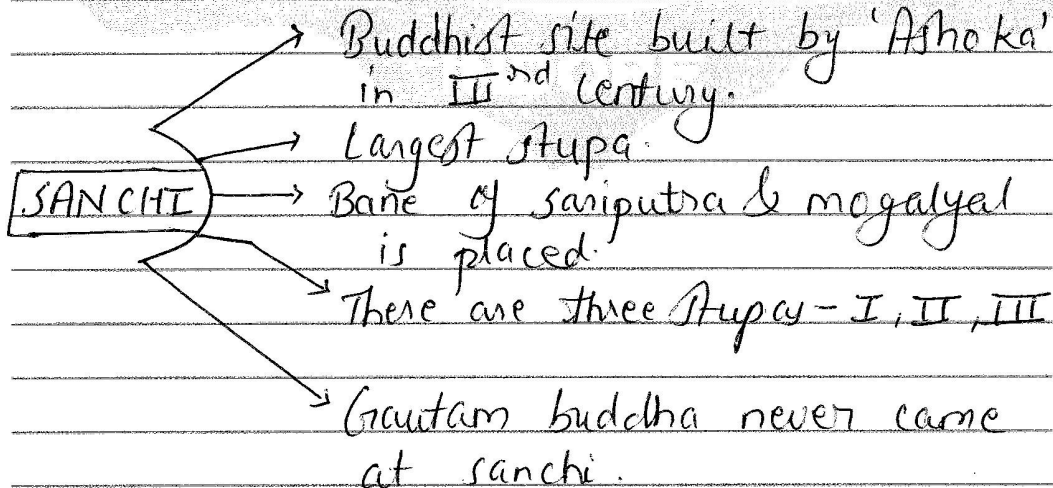 Buddhist site built by 'Ashoka'
in IIIrd century.
Largest stupa.
SANCHI
Bone of sariputra & mogalyal
is placed.
There are three stupas - I, II, III
Gautam buddha never came
at sanchi.